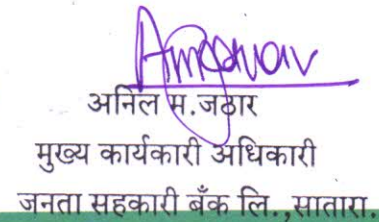 अनिल म.जठार
मुख्य कार्यकारी अधिकारी
जनता सहकारी बँक लि., सातारा.